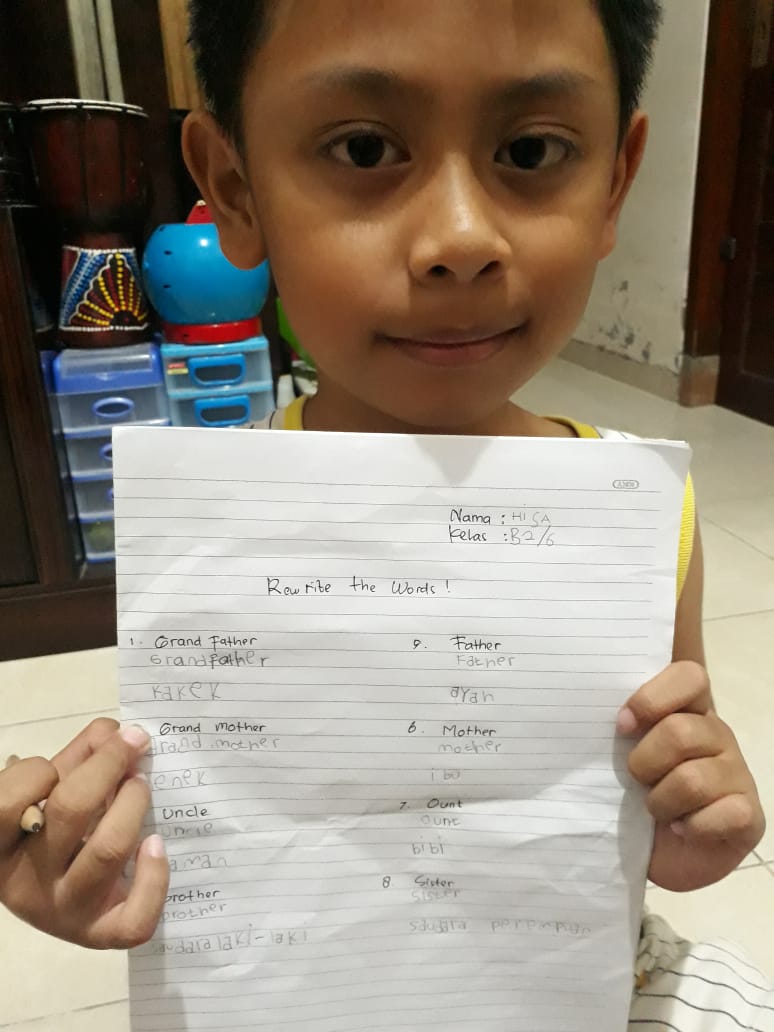 Nama : HiSA
Kelas : B2/6
Rewrite the Words !
1. Grand Father
Grandfather
KaKEK
Grand mother
rand mother
enek
Uncle
uncle
aman
brother
brother
saudara laki-laki
9. Father
Father
ayah
6. Mother
mother
ibu
7. Ount
ount
bibi
8 Sister
sister
saudara perempuan